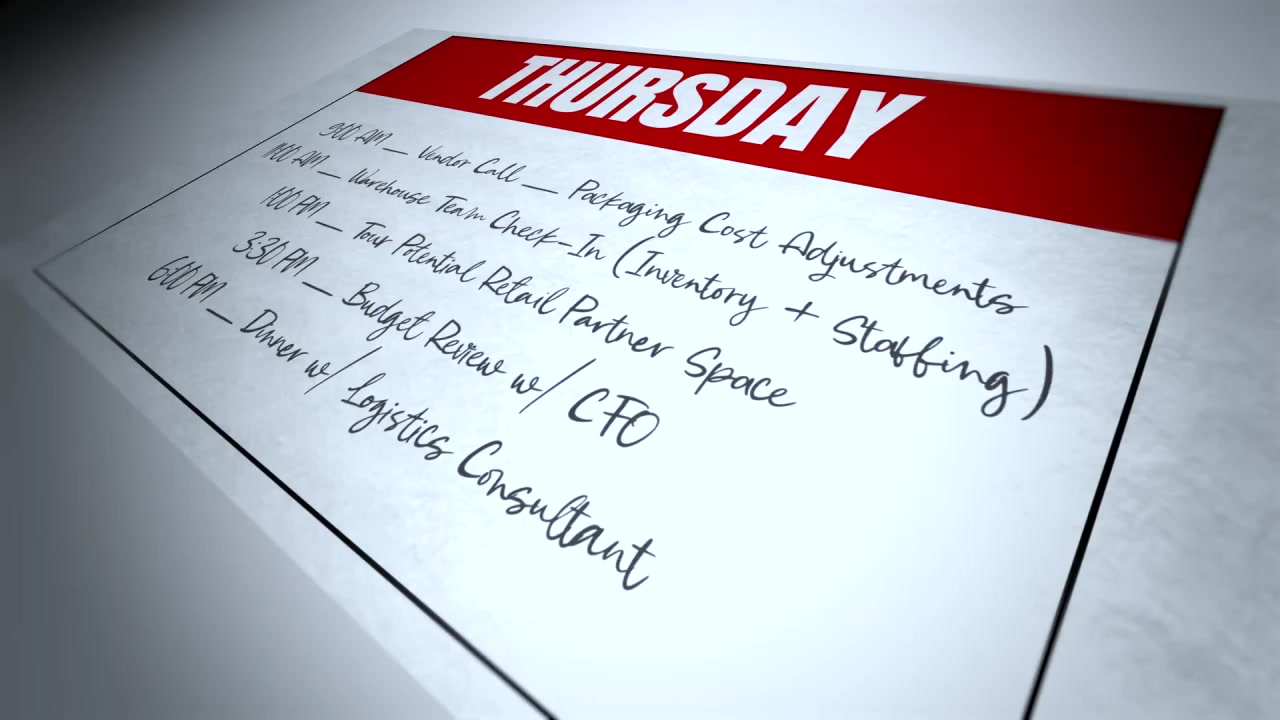 THURSDAY
9:00 AM — Vendor Call — Packaging Cost Adjustments
11:00 AM — Warehouse Team Check-In (Inventory + Staffing)
1:00 PM — Tour Potential Retail Partner Space
3:30 PM — Budget Review w/ CFO
6:00 PM — Dinner w/ Logistics Consultant